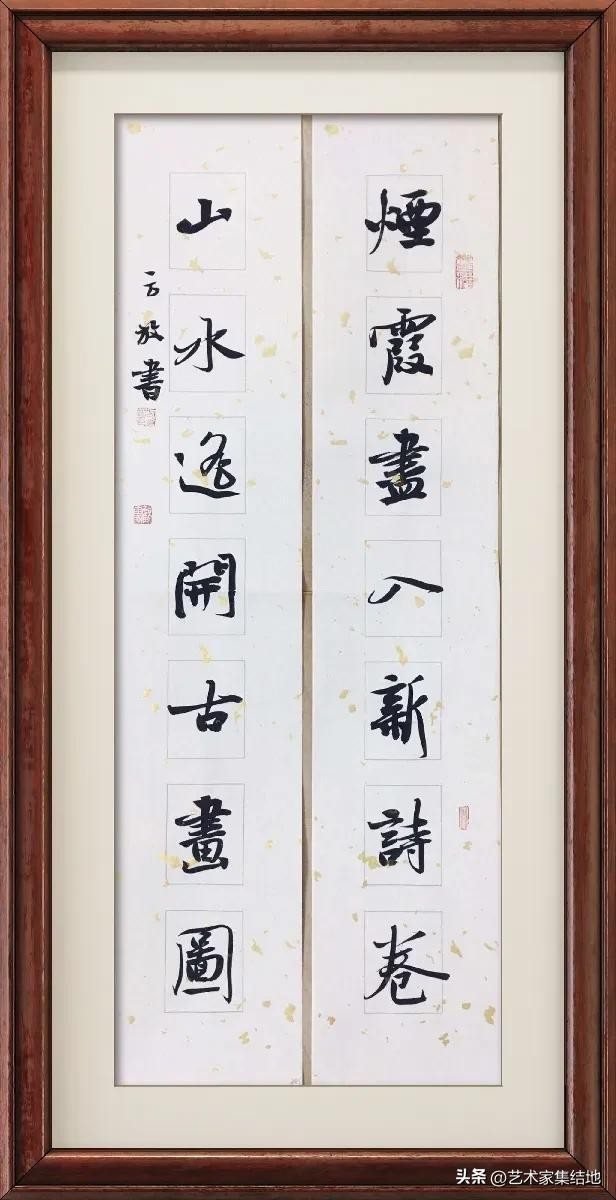 煙霞盡入新詩卷
山水遙開古畫圖
書
头条 @艺术家集结地